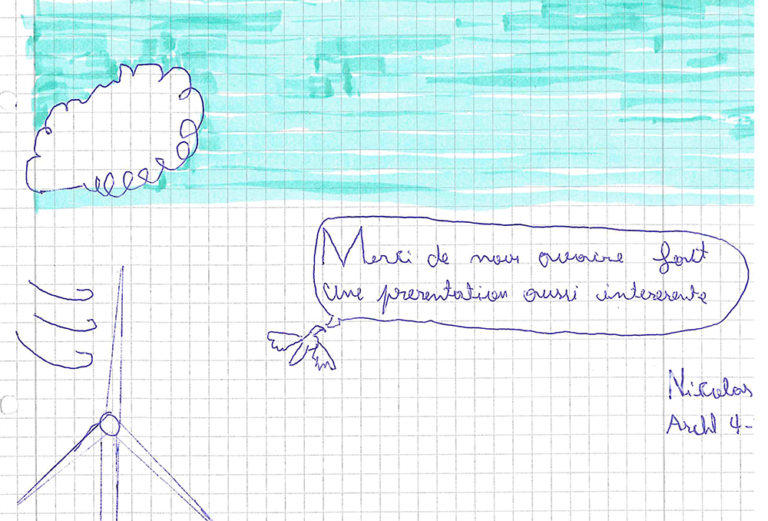 Merci de nous avoire fait
une presentation aussi interesente
Nicolas
Archl 4-